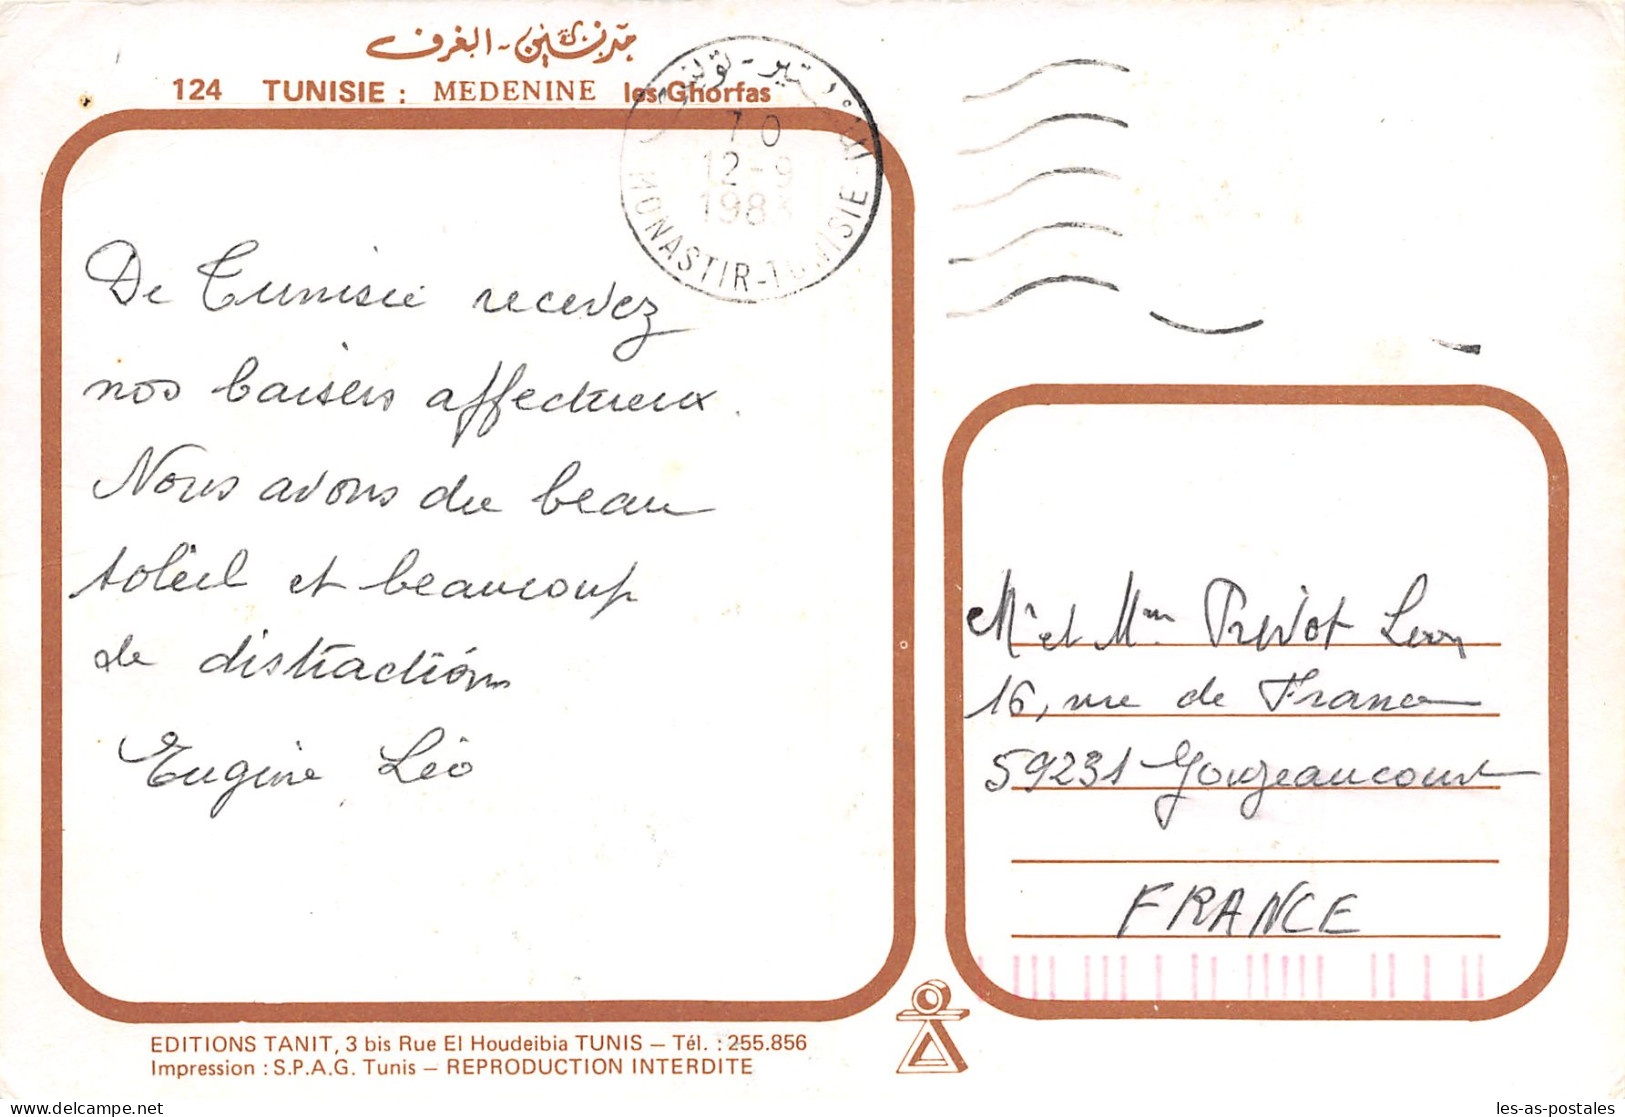 مدنين - الغرف
124 TUNISIE : MEDENINE les Ghorfas
10
12-9
1983
MONASTIR-TUNISIE
De Tunisie recevez
nos baisers affectueux.
Nous avons du beau
soleil et beaucoup
de distractions
Eugénie Léo
Mr et Mme Prévot Léon
16, rue de France
59231 Gouzeaucourt
FRANCE
EDITIONS TANIT, 3 bis Rue El Houdeibia TUNIS – Tél. : 255.856
Impression : S.P.A.G. Tunis – REPRODUCTION INTERDITE
delcampe.net
les-as-postales